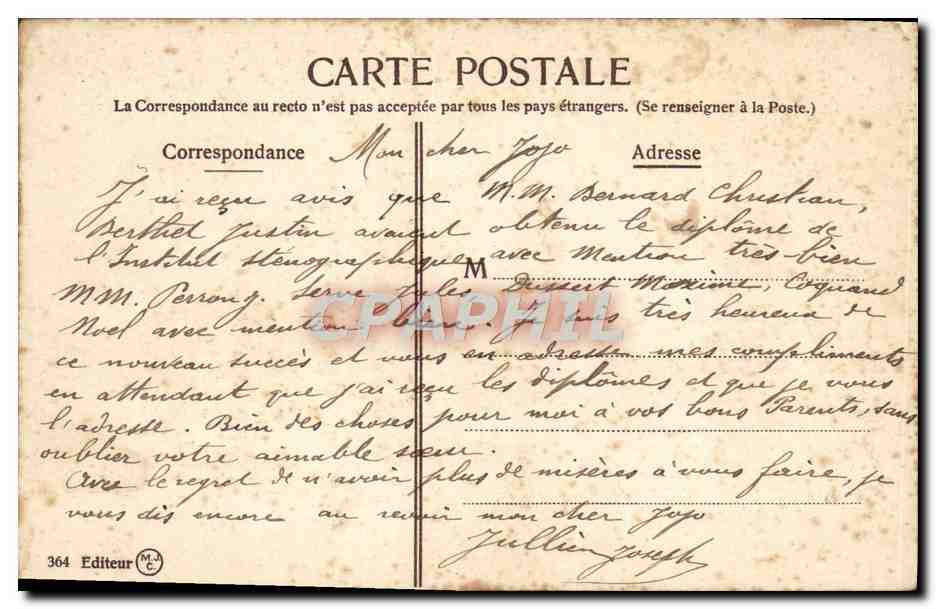 CARTE POSTALE
La Correspondance au recto n'est pas acceptée par tous les pays étrangers. (Se renseigner à la Poste.)
Correspondance
Adresse
Mon cher Jojo
J'ai reçu avis que M.M. Bernard Christian,
Berthet Justin avaient obtenu le diplôme de
l'Institut sténographique avec Mention très bien
M
MM. Perron g. Serve Jules Dussert Maxime, Coquand
Noel avec mention bien. Je suis très heureux de
ce nouveau succès et vous en adresse mes compliments
en attendant que j'ai reçu les diplômes et que je vous
l'adresse. Bien des choses pour moi à vos bons Parents, sans
oublier votre aimable soeur.
Avec le regret de n'avoir plus de misères à vous faire, je
vous dis encore au revoir mon cher Jojo
Jullien Joseph
364 Editeur M.J.C.
CPAPHIL